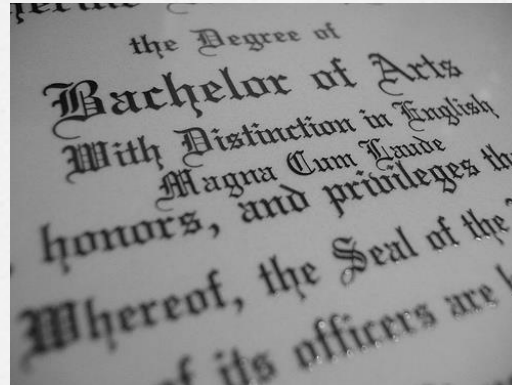 the Degree of
Bachelor of Arts
With Distinction in English
Magna Cum Laude
honors, and privileges
Whereof, the Seal of the
of its officers are